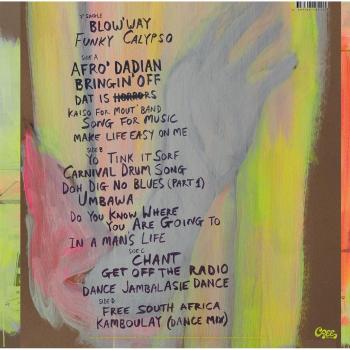 7" SINGLE
BLOW'WAY
FUNKY CALYPSO
SIDE A
AFRO' DADIAN
BRINGIN' OFF
DAT IS HORRORS
KAISO FOR MOUT' BAND
SONG FOR MUSIC
MAKE LIFE EASY ON ME
SIDE B
YO TINK IT SORF
CARNIVAL DRUM SONG
DOH DIG NO BLUES (PART 1)
UMBAWA
DO YOU KNOW WHERE
YOU ARE GOING TO
IN A MAN'S LIFE
SIDE C
CHANT
GET OFF THE RADIO
DANCE JAMBALASIE DANCE
SIDE D
FREE SOUTH AFRICA
KAMBOULAY (DANCE MIX)